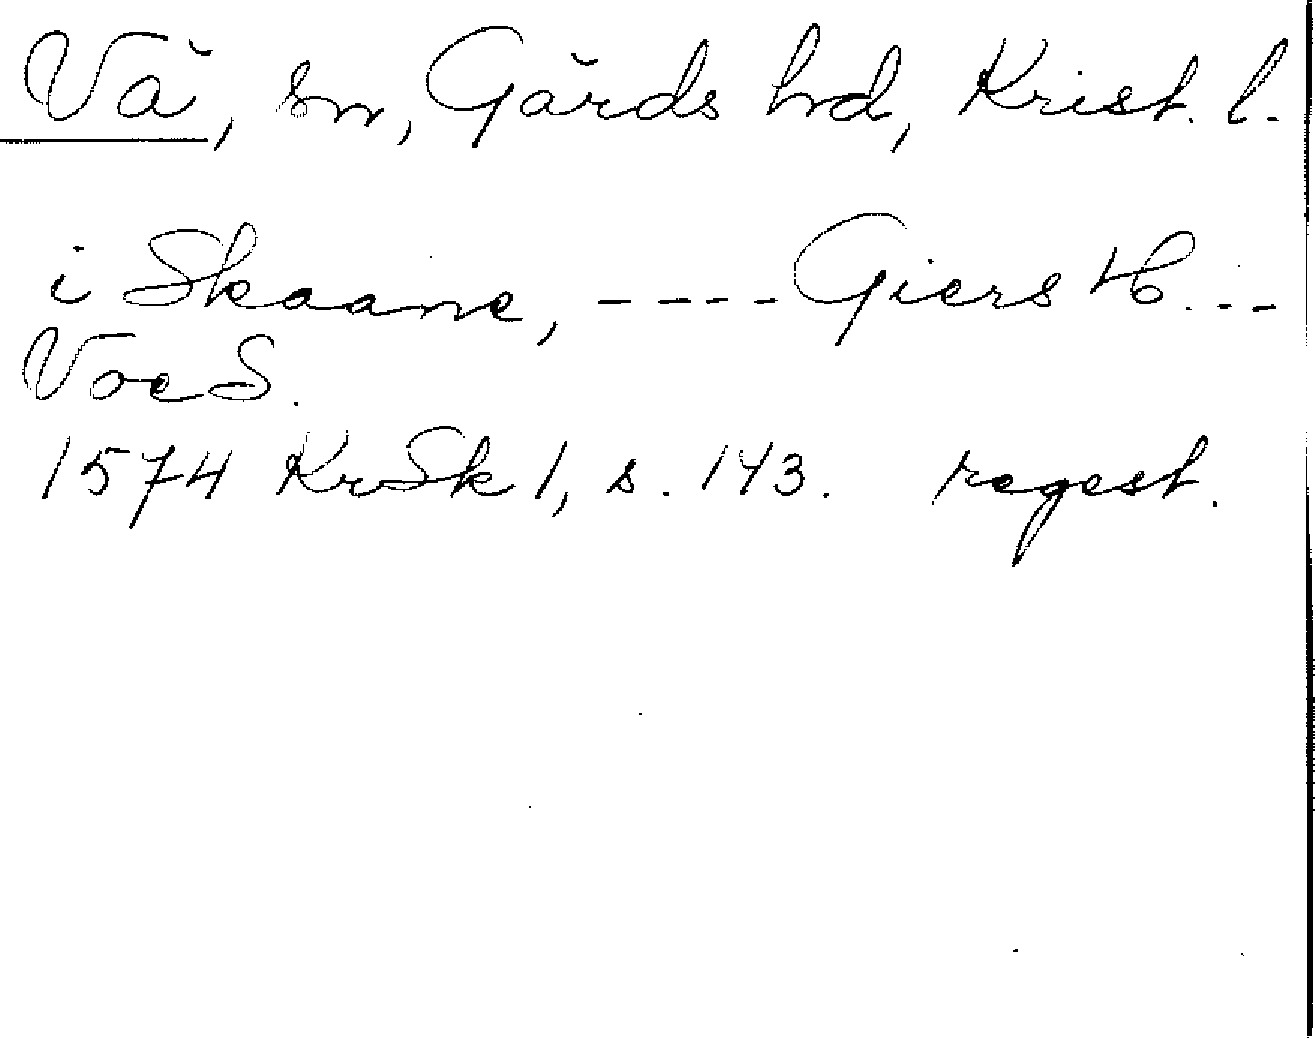 Vå, sn, Gärds hd, Krist. l.
i Skaane, ---- Giers H. ---
Voe S.
1574 KrSk 1, s. 143. regest.